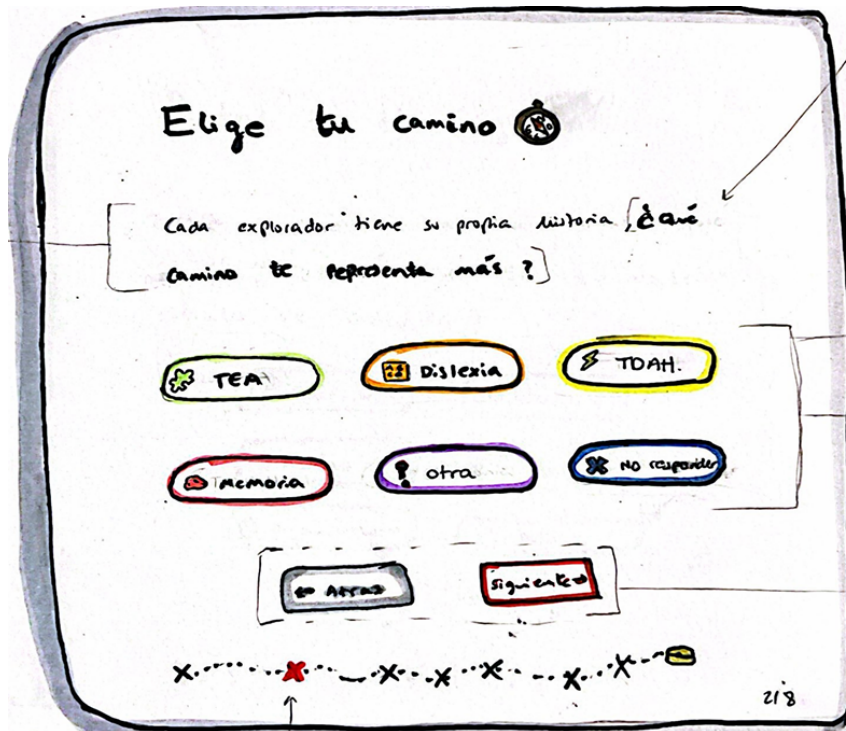 Elige tu camino
Cada explorador tiene su propia historia, ¿Qué
camino te representa más?
TEA
Dislexia
TDAH.
memoria
otra
No responder
← Atrás
siguiente →
2/8